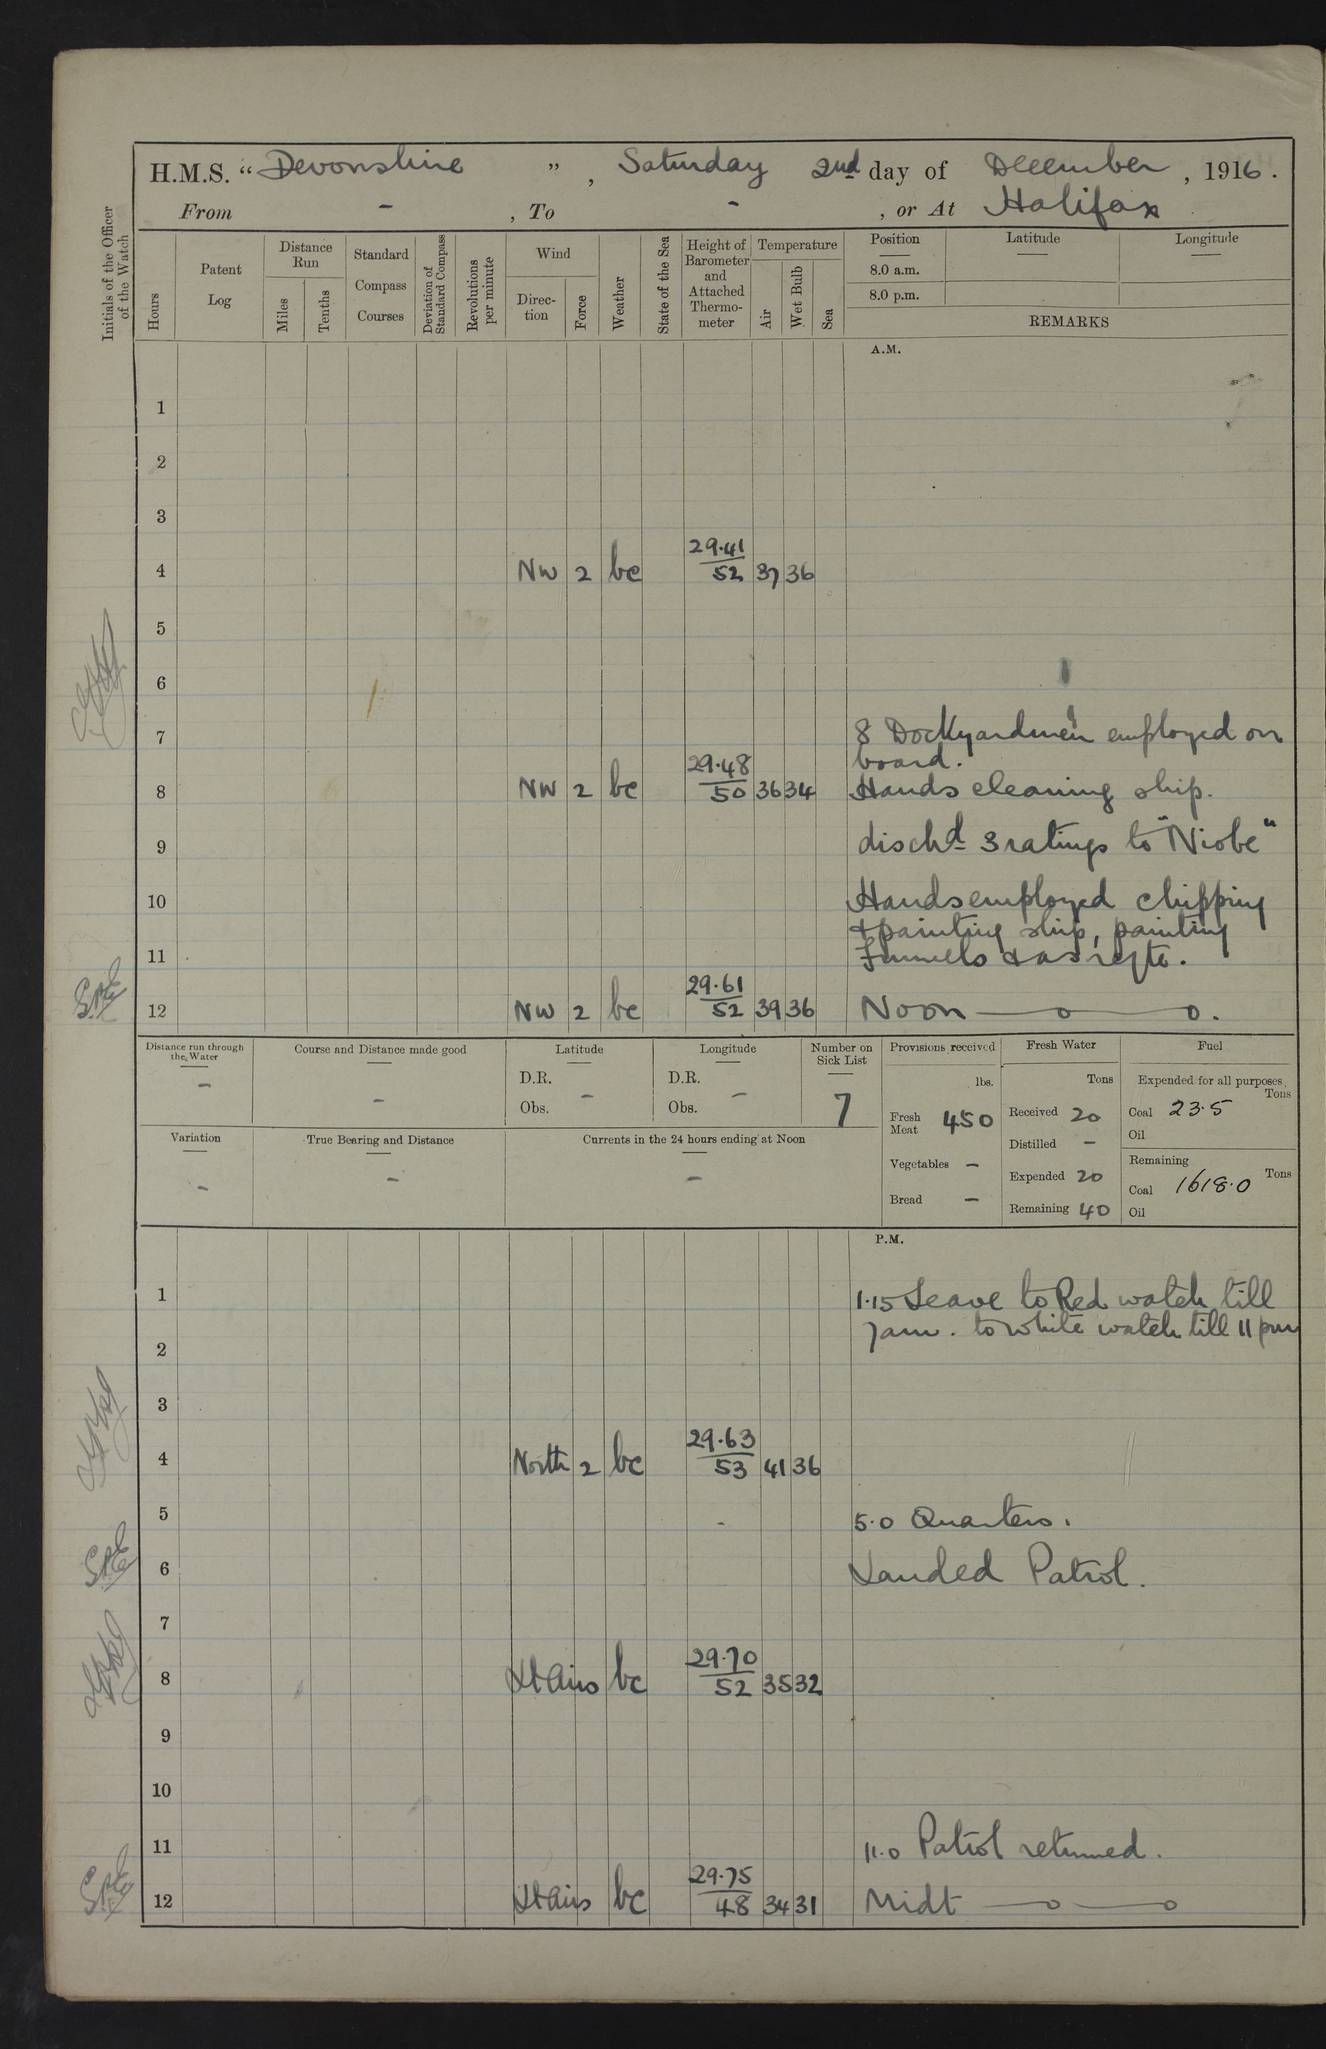 H.M.S. “ Devonshire ” , Saturday 2nd day of December , 1916 .
From - , To - , or At Halifax
Initials of the Officer
of the Watch
Hours
Patent
Log
Distance
Run
Miles
Tenths
Standard
Compass
Courses
Deviation of
Standard Compass
Revolutions
per minute
Wind
Direc-
tion
Force
Weather
State of the Sea
Height of
Barometer
and
Attached
Thermo-
meter
Temperature
Air
Wet Bulb
Sea
Position
8.0 a.m.
8.0 p.m.
Latitude
Longitude
REMARKS
A.M.
1
2
3
4 NW 2 bc 29.41 52 37 36
5
6
7 8 Dockyardmen employed on
board.
8 NW 2 bc 29.48 50 36 34 Hands cleaning ship.
9 dischd 3 ratings to "Niobe"
10 Hands employed chipping
& painting ship, painting
11 Funnels & as reqte.
12 NW 2 bc 29.61 52 39 36 Noon
Distance run through
the Water
-
Course and Distance made good
-
Latitude
D.R.
Obs. -
Longitude
D.R.
Obs. -
Number on
Sick List
7
Provisions received
lbs.
Fresh
Meat 450
Vegetables -
Bread -
Fresh Water
Tons
Received 20
Distilled -
Expended 20
Remaining 40
Fuel
Expended for all purposes
Tons
Coal 23.5
Oil
Remaining
Tons
Coal 1618.0
Oil
Variation
-
True Bearing and Distance
-
Currents in the 24 hours ending at Noon
-
P.M.
1 1.15 Leave to Red watch till
7am. to white watch till 11 pm
2
3
4 North 2 bc 29.63 53 41 36
5 5.0 Quarters.
6 Landed Patrol.
7
8 Lt Airs bc 29.70 52 35 32
9
10
11 11.0 Patrol returned.
12 Lt Airs bc 29.75 48 34 31 Midt